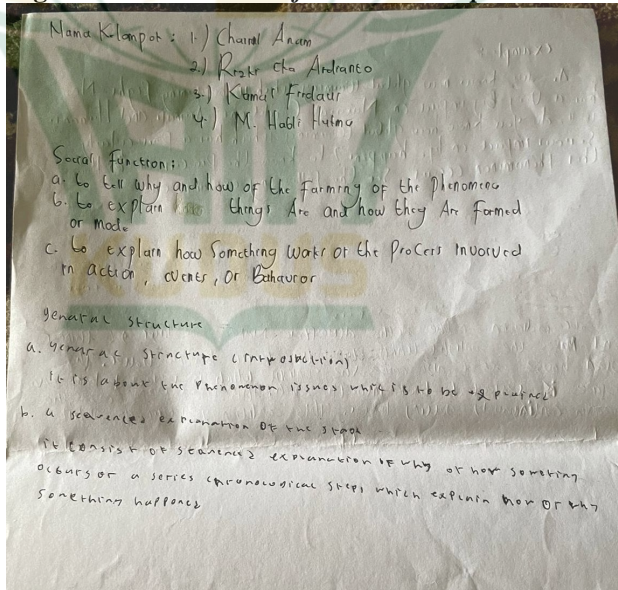 Nama Klompok : 1.) Choirul Anam
2.) Rizki Eka Ardianto
3.) Kamal Firdaus
4.) M. Habli
Social Function :
a. to tell why and how of the Farming of the Phenomena
b. to explain things Are and how they Are Formed
or mode
c. to explain how Something Works or the Process Involved
in action, events, or Behavior
general structure
a. general structure (introduction)
It is about the Phenomenon issues which is to be explained
b. a sequences explanation of the
it consist of explanation of why or how someting
occurs or a series chronological steps which explain how or why
something happened
KUDUS